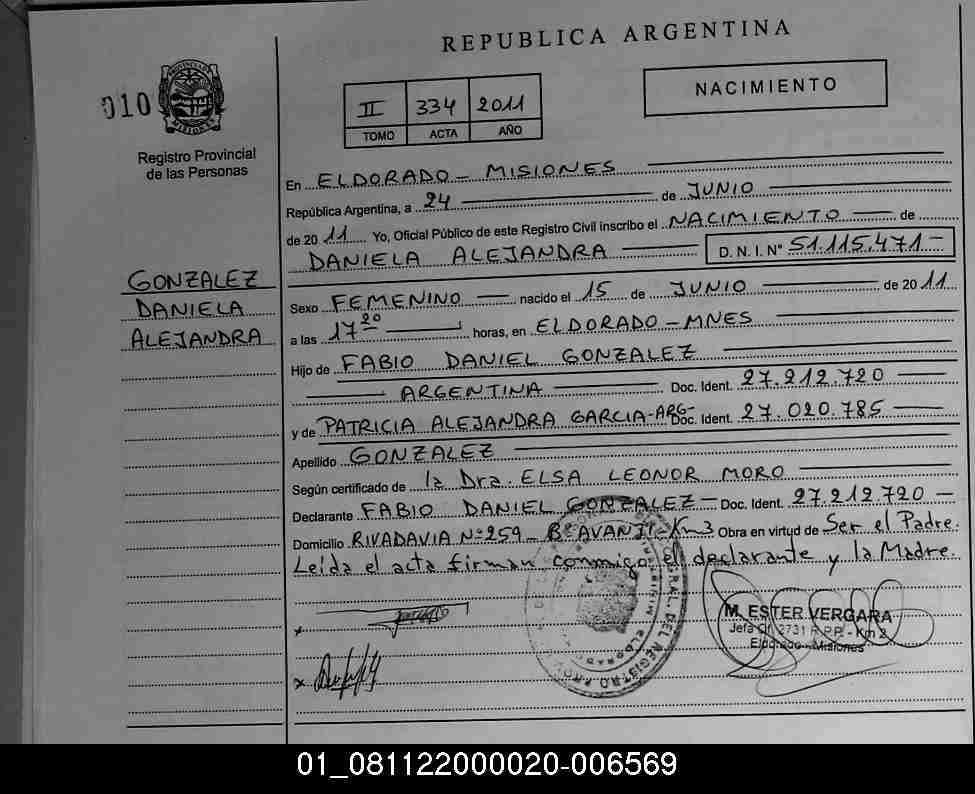 REPUBLICA ARGENTINA
010
PROVINCIA DE MISIONES
Registro Provincial
de las Personas
II 334 2011
TOMO ACTA AÑO
NACIMIENTO
En ELDORADO - MISIONES
República Argentina, a 24 de JUNIO
de 2011 Yo, Oficial Público de este Registro Civil inscribo el NACIMIENTO de
DANIELA ALEJANDRA D. N. I. N° 51.115.471-
GONZALEZ
DANIELA
ALEJANDRA
Sexo FEMENINO nacido el 15 de JUNIO de 2011.
a las 17 20 horas, en ELDORADO - MNES
Hijo de FABIO DANIEL GONZALEZ
ARGENTINA Doc. Ident. 27.212.720
y de PATRICIA ALEJANDRA GARCIA-ARG- Doc. Ident. 27.020.785
Apellido GONZALEZ
Según certificado de la Dra. ELSA LEONOR MORO
Declarante FABIO DANIEL GONZALEZ - Doc. Ident. 27.212.720 -
Domicilio RIVADAVIA N°259 - B° AVANTI - Km 3 Obra en virtud de Ser el Padre.
Leída el acta firman conmigo el declarante y la Madre.
M. ESTER VERGARA
Jefa Of. 2731 R.P.P. - Km 2
Eldorado - Misiones
DEL REGISTRO PROV
ELDORADO
01_081122000020-006569